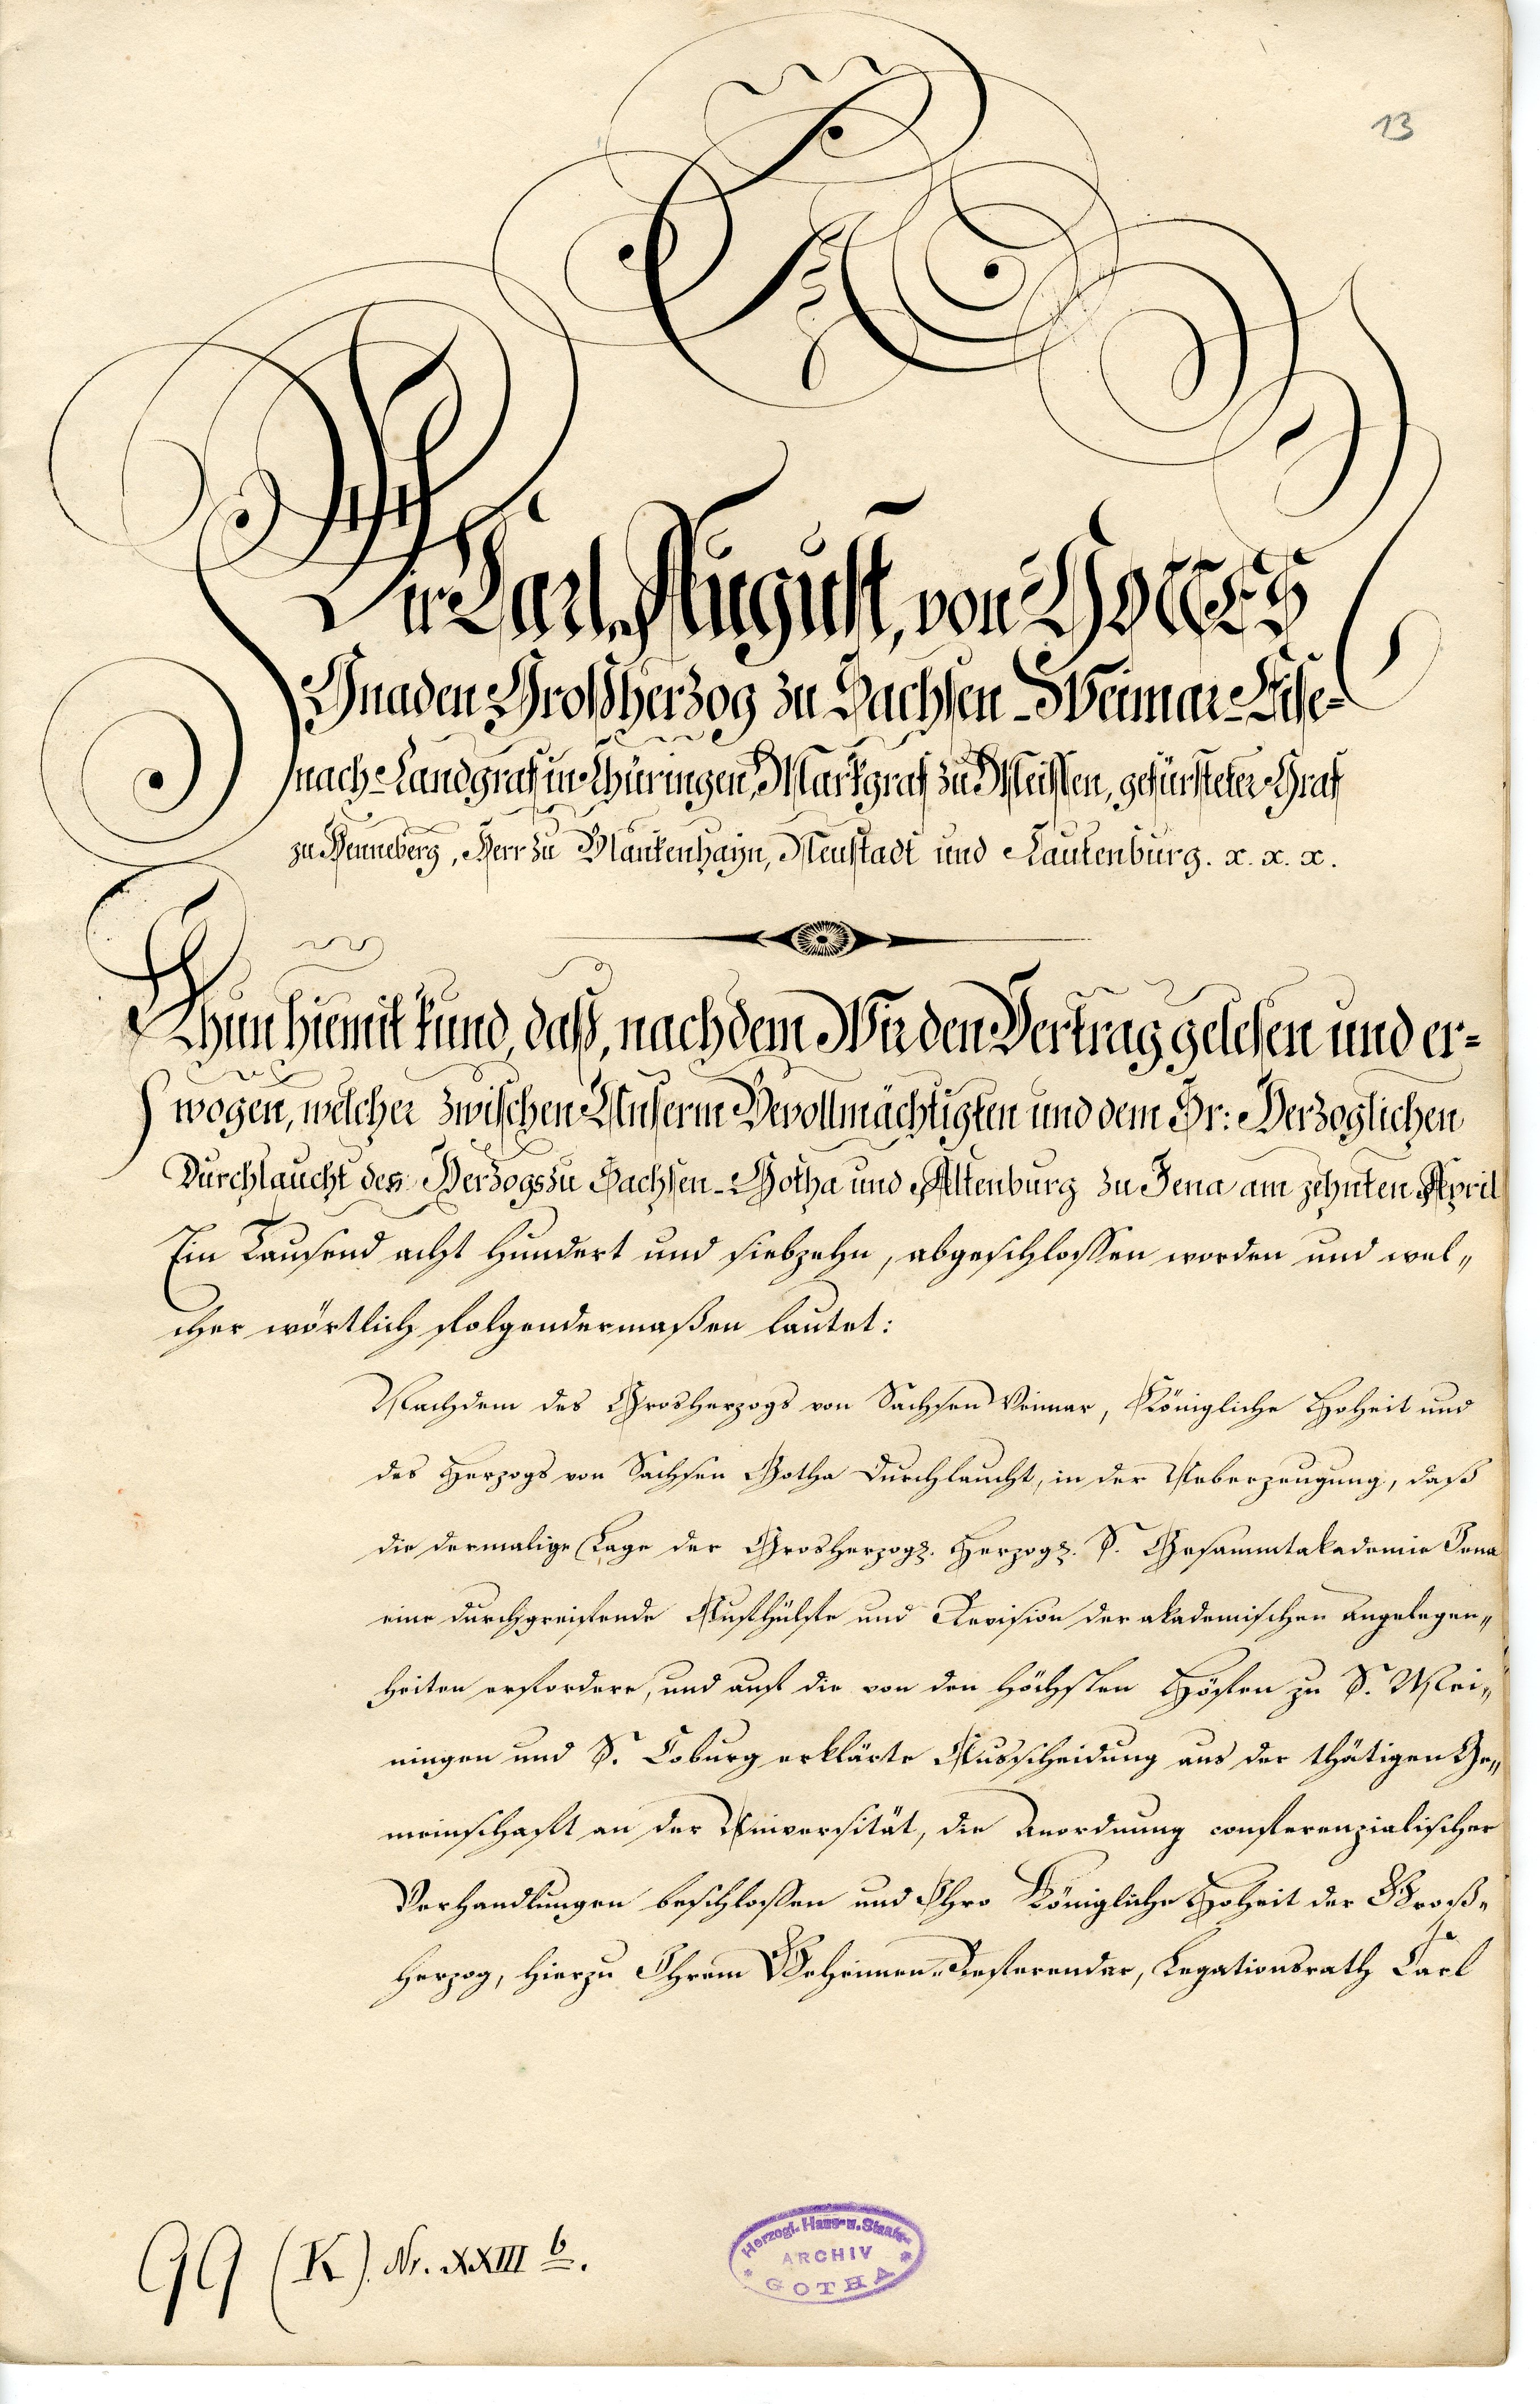 13
Wir Carl August, von Gottes
Gnaden Großherzog zu Sachsen-Weimar-Eise-
nach Landgraf in Thüringen, Markgraf zu Meissen, gefürsteter Graf
zu Henneberg, Herr zu Blankenhayn, Neustadt und Tautenburg. x. x. x.
Thun hiemit kund, daß, nachdem Wir den Vertrag gelesen und er-
wogen, welcher zwischen Unserm Bevollmächtigten und dem Sr: Herzoglichen
Durchlaucht des Herzogs zu Sachsen-Gotha und Altenburg zu Jena am zehnten April
Ein Tausend acht hundert und siebzehn, abgeschlossen worden und wel-
cher wörtlich folgendermaßen lautet:
Nachdem des Grosherzogs von Sachsen Weimar, Königliche Hoheit und
des Herzogs von Sachsen Gotha Durchlaucht, in der Ueberzeugung, daß
die dermalige Lage der Grosherzogl. Herzogl. S. Gesammtakademie Jena
eine durchgreifende Aufhülfe und Revision der akademischen Angelegen-
heiten erfordere, und auf die von den Höchsten Höfen zu S. Mei-
ningen und S. Coburg erklärte Ausscheidung aus der thätigen Ge-
meinschaft an der Universität, die Anordnung conferenzialischer
Verhandlungen beschlossen und Ihro Königliche Hoheit der Groß-
herzog, hierzu Ihrem Geheimen-Referendar, Legationsrath Carl
QQ (K). Nr. XXIII b.
Herzogl. Haus- u. Staats-
ARCHIV
* GOTHA *